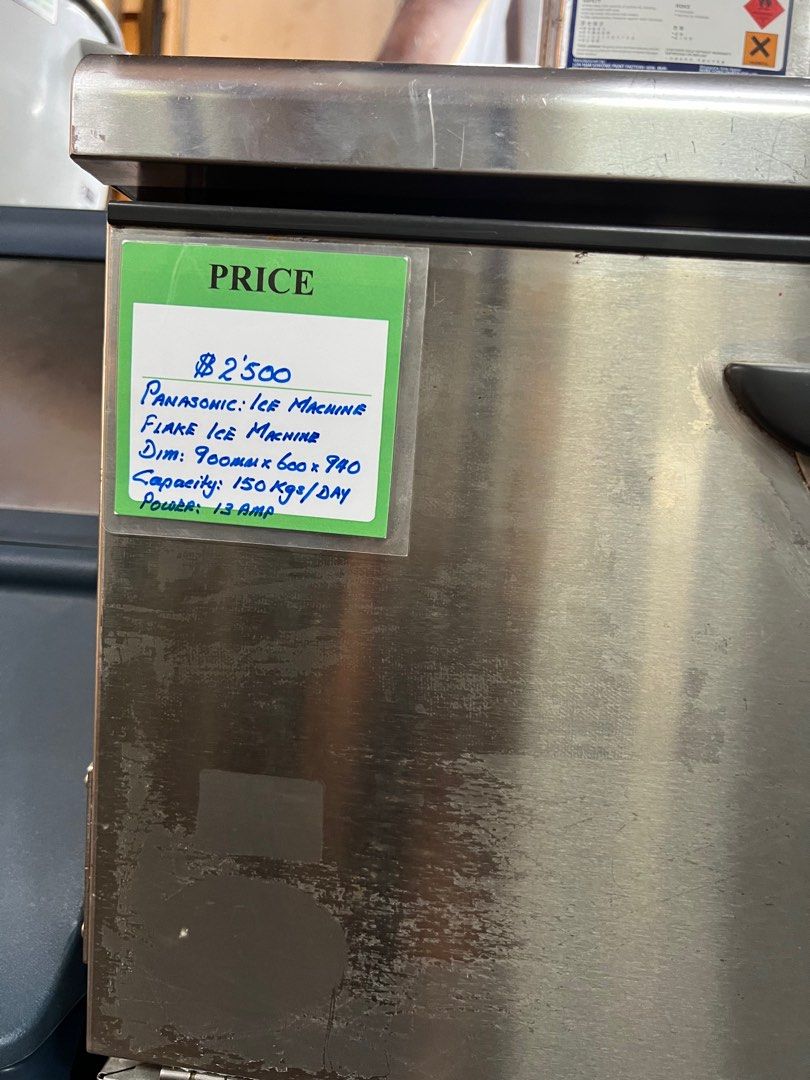 PRICE
$2'500
PANASONIC: ICE MACHINE
FLAKE ICE MACHINE
DIM: 900MM x 600 x 940
Capacity: 150 Kgs/DAY
POWER: 13 AMP